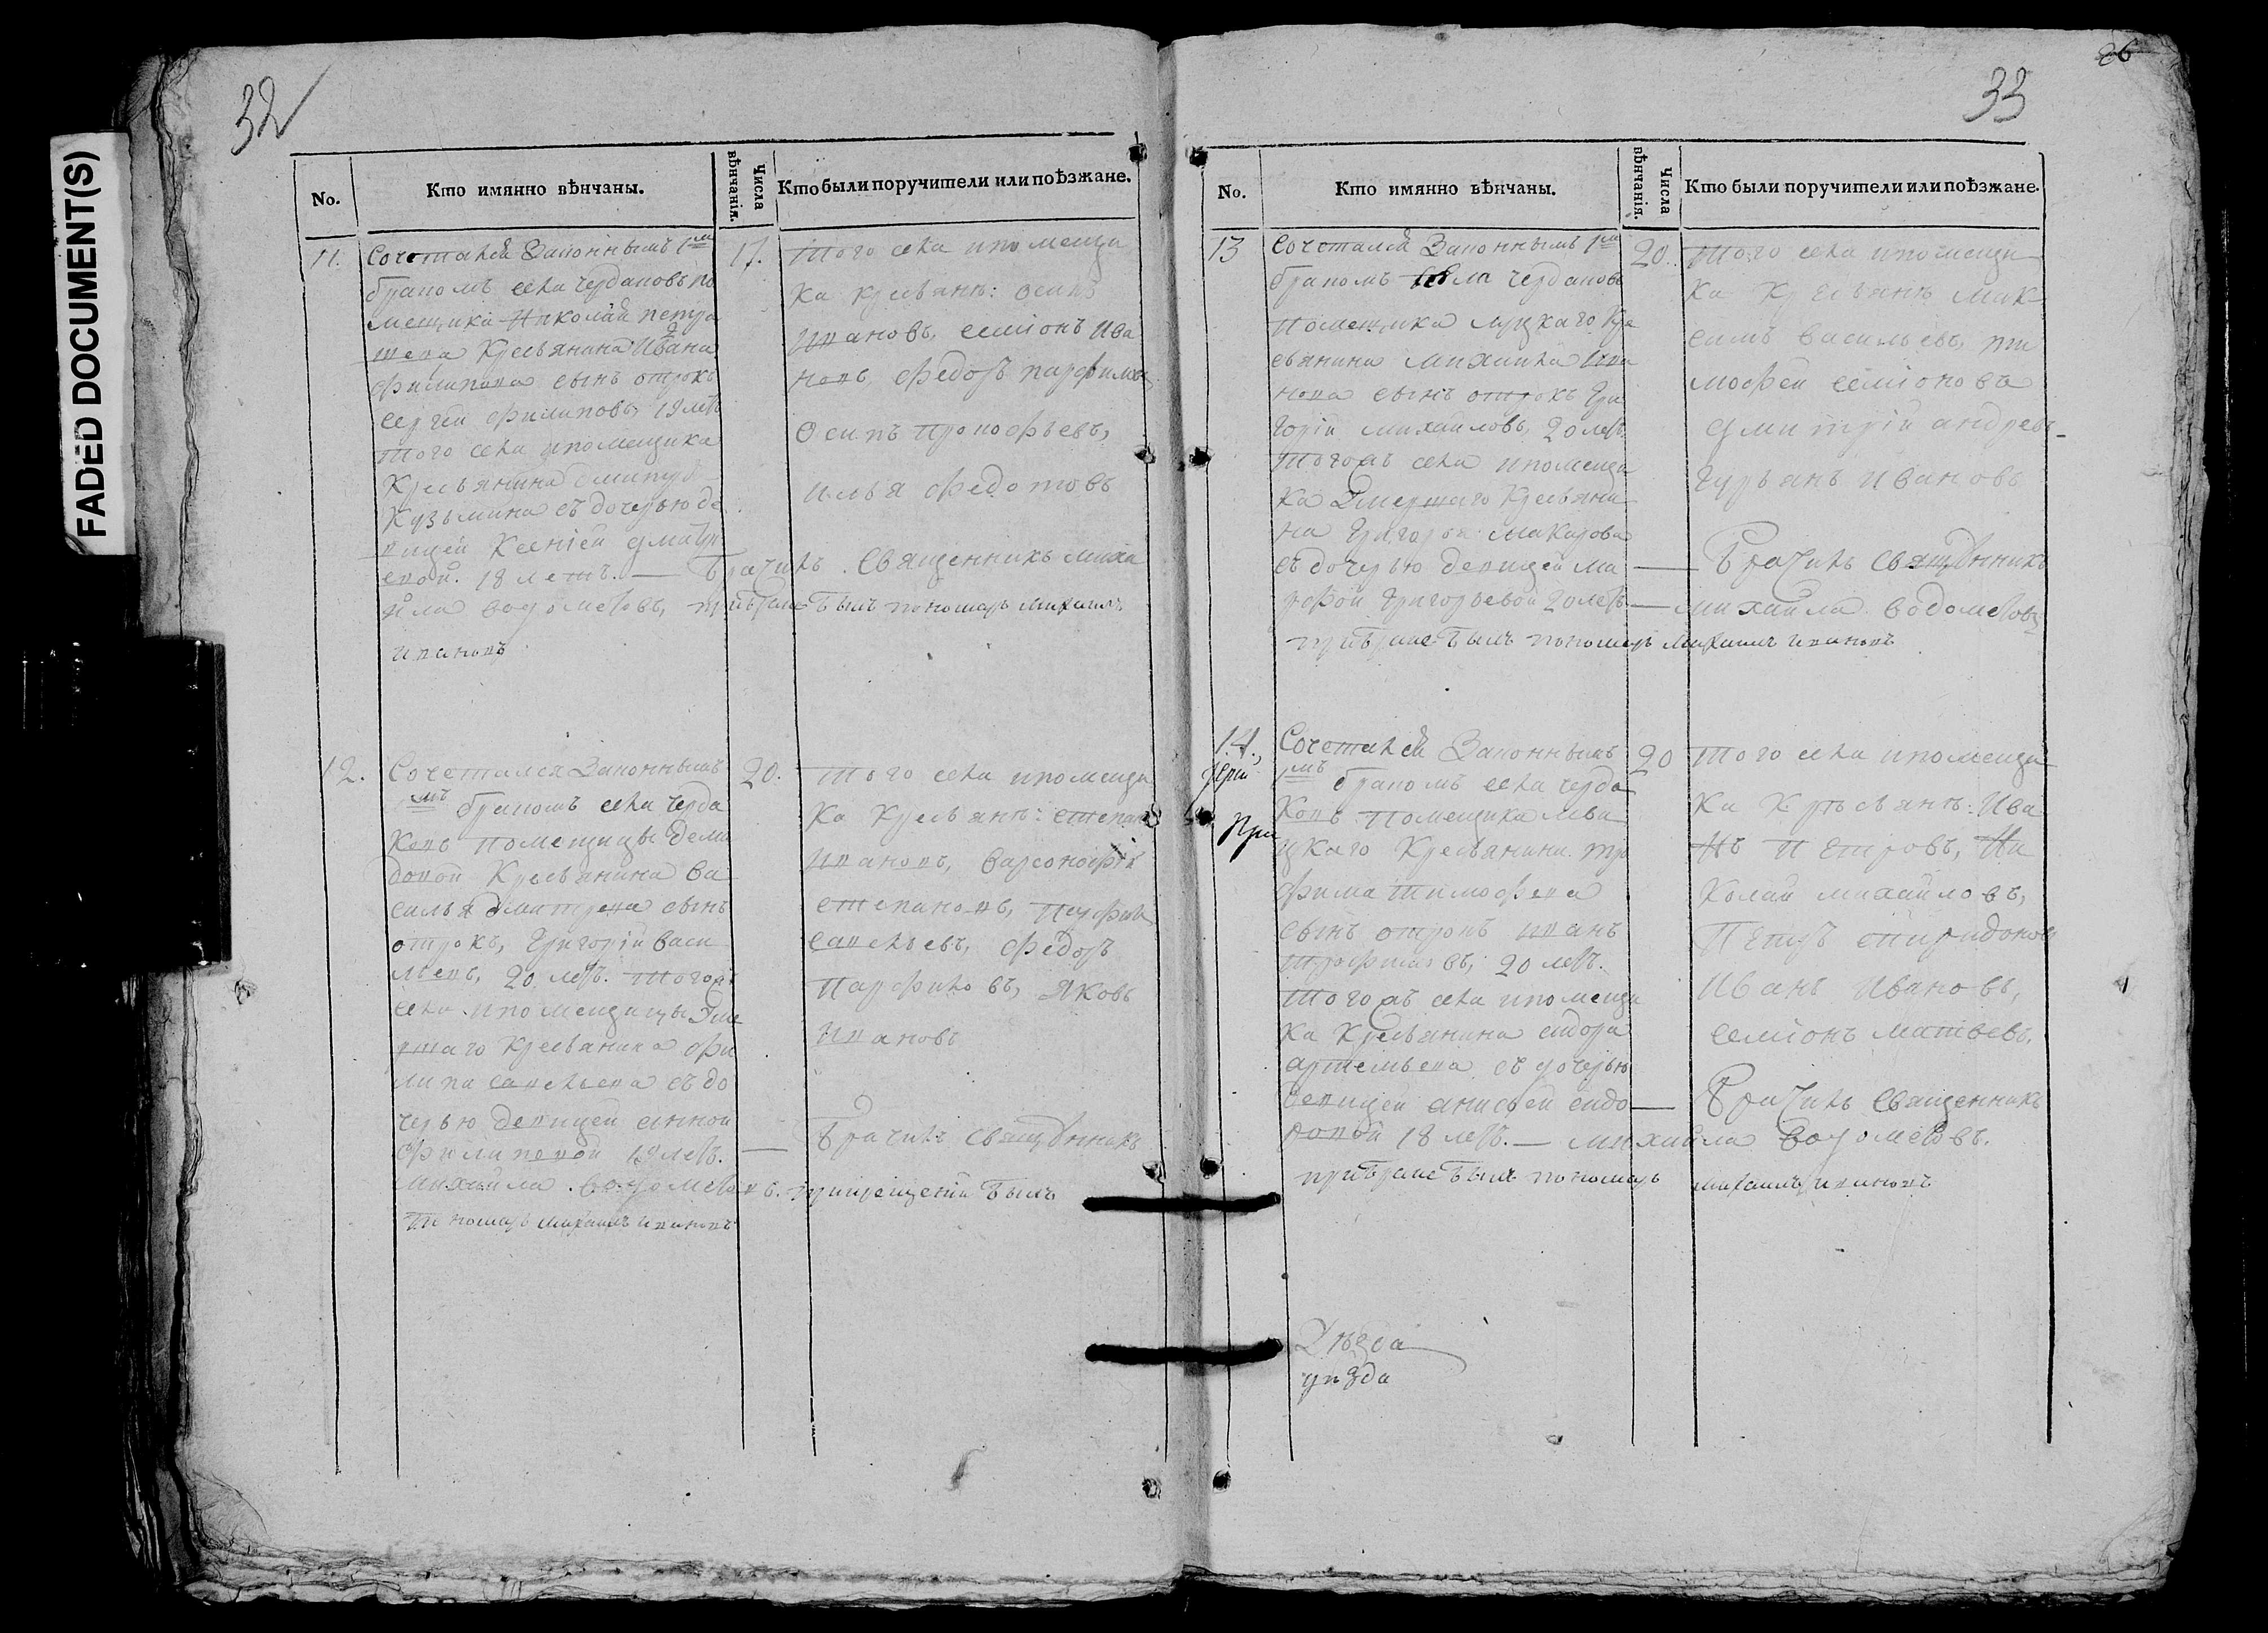 FADED DOCUMENT(S)
32
No.
Кто имянно вѣнчаны.
Числа вѣнчанія.
Кто были поручители или поѣзжане.
11.
Сочетался Законнымъ 1мъ
бракомъ села Чердаковъ по
мещика Николая петро
Кресьянина Ивана
Филипова сынъ отрокъ
Сергей Филиповъ, 19 летъ
того села ипомещика
Кресьянина Дмитрея
Кузьмина съ дочерью де
вицей Ксенiей дмитри
евой. 18 летъ. — Брачилъ Священникъ Миха
йла Водолеевъ, был пономарь Михаилъ
ивановъ
17.
того села ипомещи
ка кресьянъ: осипъ
Ивановъ, семiонъ Ива
новъ, Федоръ парфиловъ
Осипъ Прокофьевъ,
илья Федотовъ
12.
Сочетался Законнымъ
1мъ бракомъ села Черда
ковъ помещицы Деми
довой Кресьянина Ва
силья дмитрева сынъ
отрокъ, Григорiй васи
льевъ, 20 летъ. Тогожъ
села ипомещицы Уме
ршаго Кресьянина Фи
липа савельева съ до
черью девицей анной
Филиповой 19 летъ. —
михайла. при
пономарь Михаилъ ивановъ
20.
того села ипомещи
ка Кресьянъ: степанъ
Ивановъ, Варсонофiй
степановъ,
савельевъ, Федоръ
Парфиловъ, Яковъ
Ивановъ
Брачилъ священникъ
былъ
26
33
No.
Кто имянно вѣнчаны.
Числа вѣнчанія.
Кто были поручители или поѣзжане.
13
Сочетался Законнымъ 1мъ
бракомъ села Чердаковъ
Помещика Луцкаго Кре
сьянина михаила Ива
нова сынъ отрокъ Гри
горiй михайловъ, 20 летъ.
Тогожъ села ипомещи
ка Умершаго Кресьяни
на Григорья Макарова
съ дочерью девицей ма
рфой Григорьевой 20 летъ —
былъ пономарь Михаилъ ивановъ
20.
Того села ипомещи
ка Кресьянъ мак
симъ васильевъ, ти
мофей семiоновъ
дмитрiй андревъ
Гурьянъ Ивановъ
Брачилъ Священникъ
михайла
14.
Сочетался Законнымъ
1мъ бракомъ села Черда
ковъ Помещика
цкаго Кресьянина тро
фима тимофева
сынъ отрокъ иванъ
трофимовъ, 20 летъ.
Тогожъ села ипомещи
ка Кресьянина сидора
артемьева съ дочерью
девицей анисьей сидо —
ровой 18 летъ. — михайла
былъ пономарь михаилъ ивановъ
При
20
того села ипомещи
ка Кресьянъ: Ива
нъ Петровъ, Ни
колай михайловъ,
Петръ спиридоновъ
Иванъ Ивановъ,
семiонъ матвевъ.
Брачилъ Священникъ
уезда